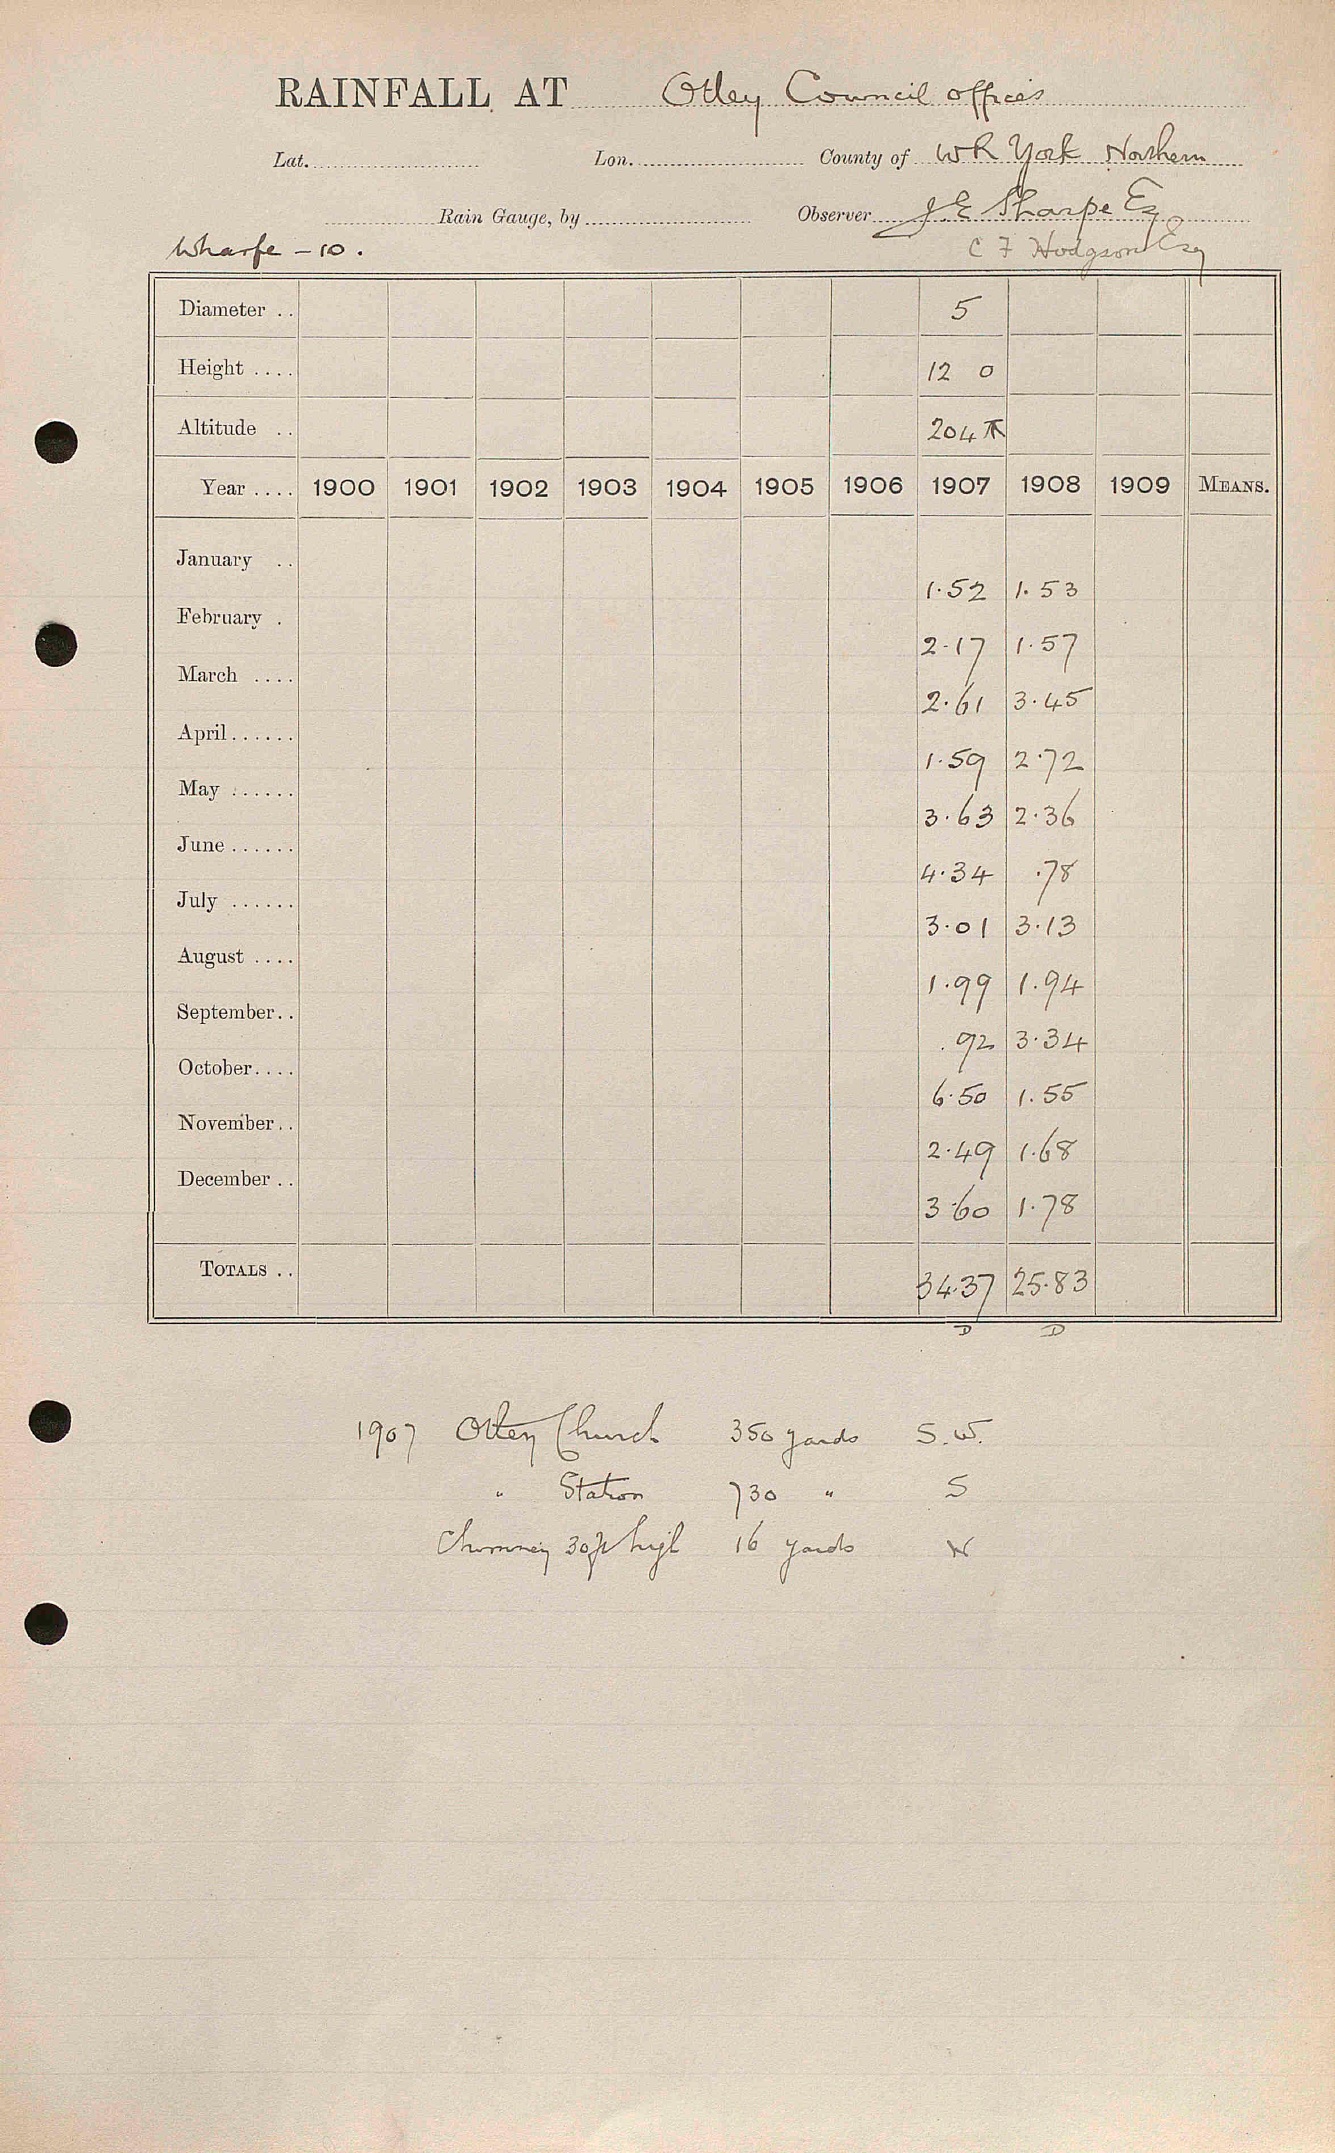 RAINFALL AT Otley Council offices
Lat. Lon. County of WR York Northern
Rain Gauge, by Observer J E Sharpe Esq
Wharfe - 10. C F Hodgson Esq
Diameter .. 5
Height .... 12 0
Altitude .. 204
Year .... 1900 1901 1902 1903 1904 1905 1906 1907 1908 1909 MEANS.
January ..
1.52 1.53
February .
2.17 1.57
March ....
2.61 3.45
April......
1.59 2.72
May ......
3.63 2.36
June ......
4.34 .78
July ......
3.01 3.13
August ....
1.99 1.94
September..
.92 3.34
October....
6.50 1.55
November..
2.49 1.68
December ..
3.60 1.78
TOTALS .. 34.37 25.83
D D
1907 Otley Church 350 yards S.W.
" Station 730 " S
Chimney 30ft high 16 yards N